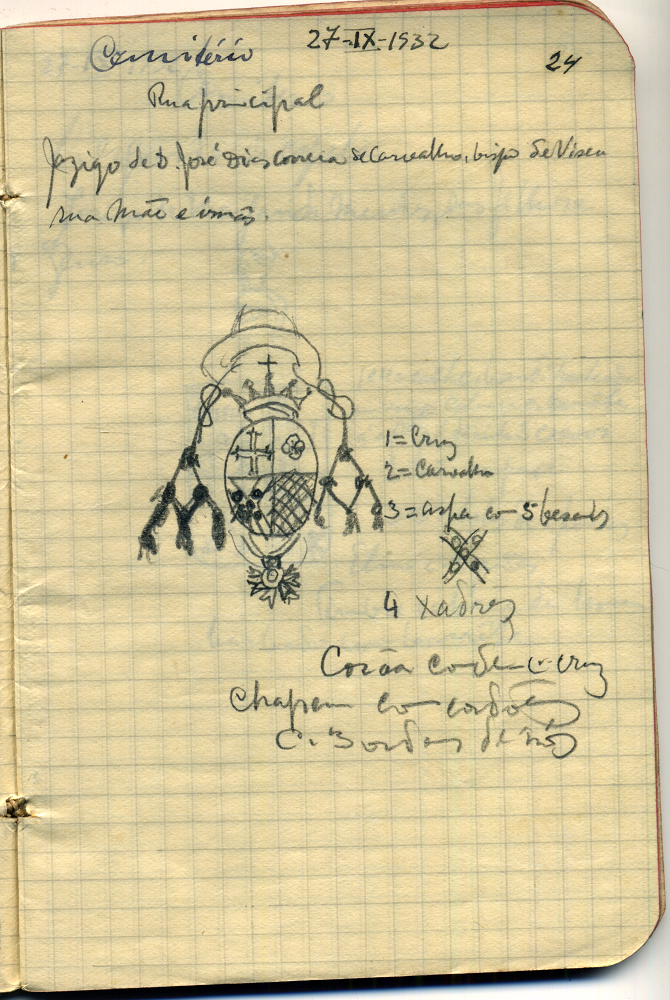 Cemitério 27-IX-1932
24
Rua principal
Jazigo de D. José Dias Correia de Carvalho, bispo de Viseu
sua Mãe e irmãs.
1 = Cruz
2 = Carvalho
3 = aspa com 5 besantes
4 xadrez
Corôa conde c. cruz
Chapeu com cordões
C. 3 bordas de nós